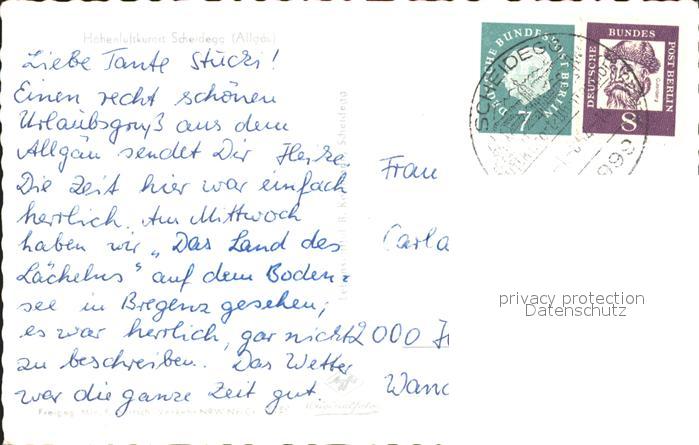 Höhenluftkurort Scheidegg (Allgäu)
Liebe Tante Stucki!
Einen recht schönen
Urlaubsgruß aus dem
Allgäu sendet Dir Heike
Die Zeit hier war einfach
herrlich. Am Mittwoch
haben wir „Das Land des
Lächelns" auf dem Boden-
see in Bregenz gesehen;
es war herrlich, gar nicht
zu beschreiben. Das Wetter
war die ganze Zeit gut.
Frau
Carla
2000
Wand
DEUTSCHE BUNDESPOST BERLIN
7
DEUTSCHE BUNDESPOST BERLIN
8
SCHEIDEGG
privacy protection
Datenschutz